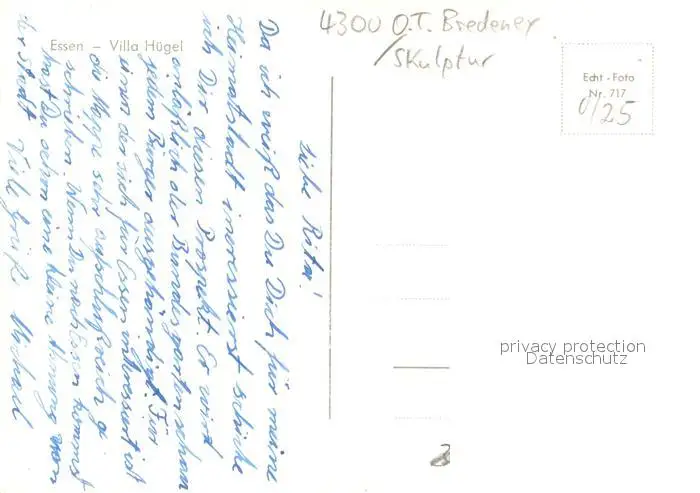 4300 O.T. Bredeney
/Skulptur
Essen – Villa Hügel
Echt - Foto
Nr. 717
0/25
Liebe Rita!
Da ich weiß das Du Dich für meine
Heimatstadt interessierst schicke
ich Dir diesen Prospekt. Er wird
anläßlich der Bundesgartenschau
jedem Bürger ausgehändigt. Für
einen der sich für Essen interessiert ist
die Mappe sehr aufschlußreich
schreiben. Wenn Du nach Essen kommst
hast Du schon eine kleine Ahnung von
der Stadt Viele Grüße Michael
privacy protection
Datenschutz